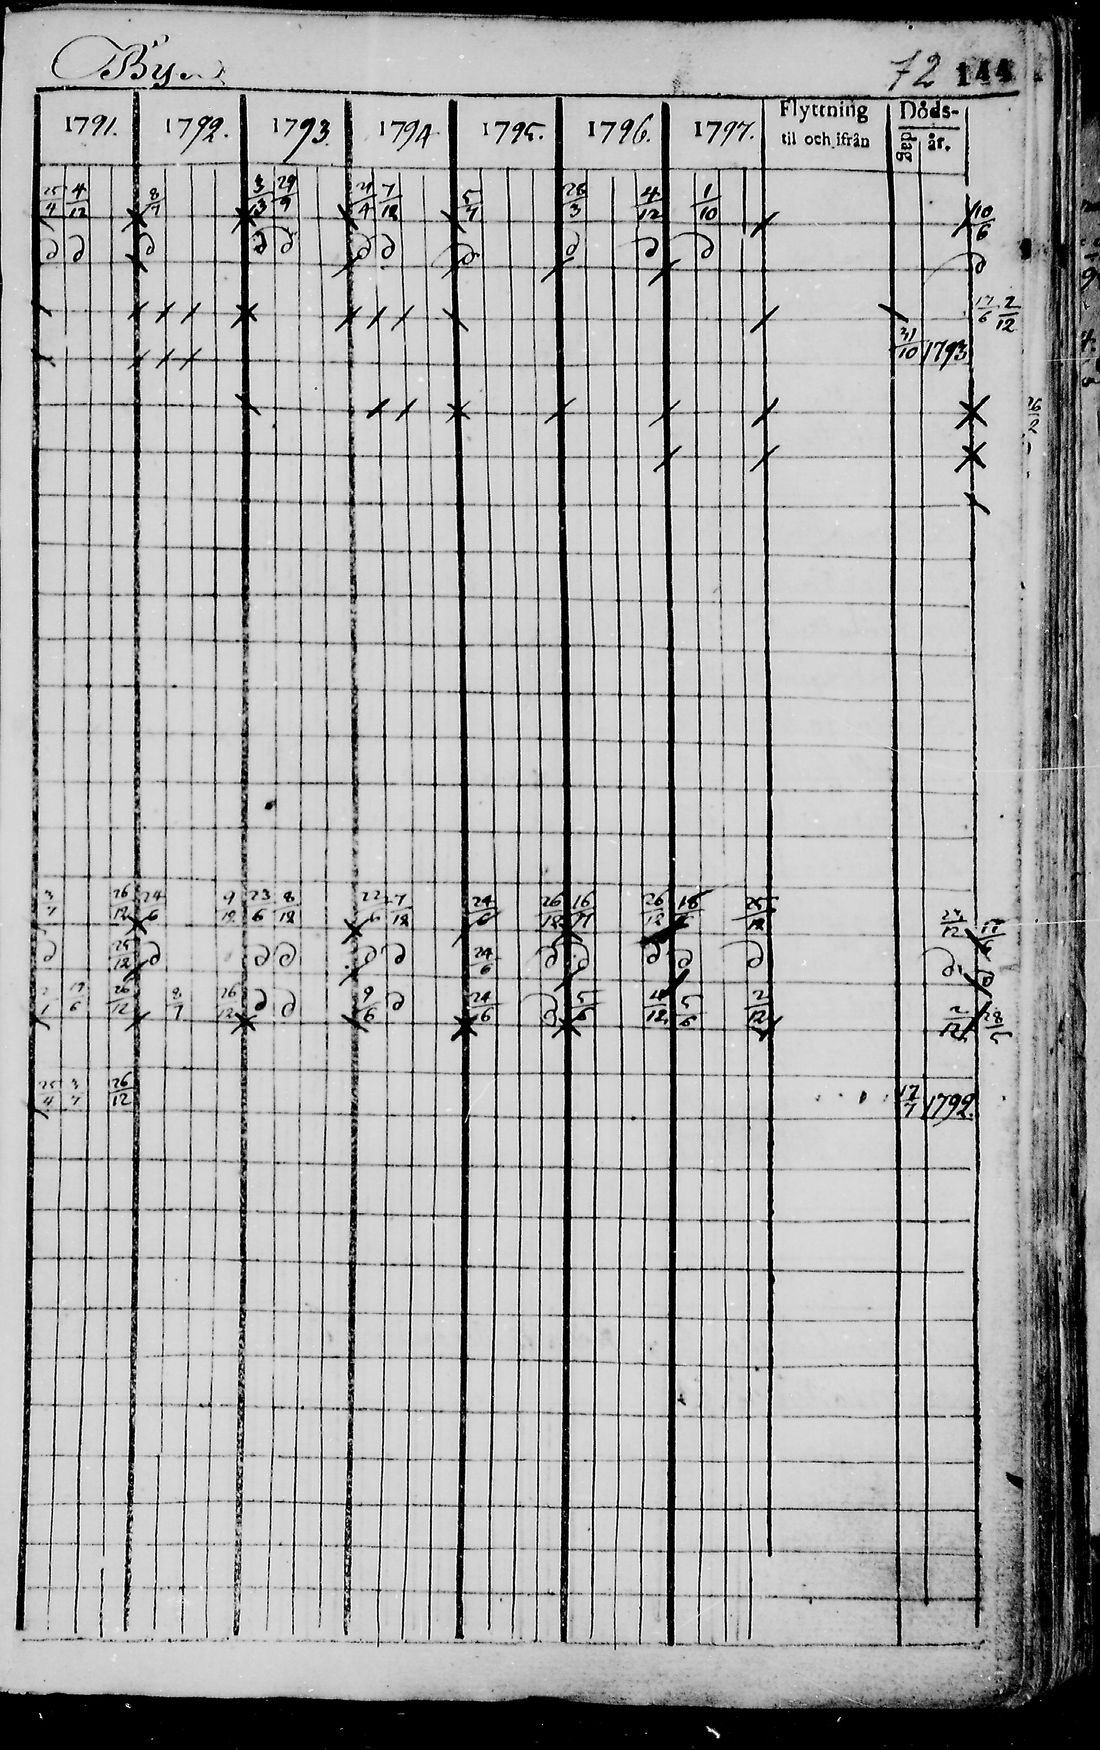 By
72 144
1791. 1792. 1793. 1794 1795. 1796. 1797. Flyttning til och ifrån Döds-dag år.
25/4 4/12 8/7 29/9 7/12 5/7 28/3 4/12 1/10 10/6
∂ ∂ ∂ ∂ ∂ ∂ ∂ ∂ ∂ ∂ ∂ ∂
17/6 2/12
31/10 1793
3/7 26/12 24/6 9/12 23/6 8/12 22/6 7/12 24/6 26/12 16/7 26/12 18/6 25/12
∂ 25/12 ∂ ∂ ∂ ∂ ∂ 24/6 ∂ ∂ ∂ ∂ ∂ ∂ ∂
2/1 17/6 26/12 8/7 26/12 ∂ ∂ 9/6 ∂ 24/6 ∂ 5/6 4/12 5/6 2/12 2/12
25/4 3/7 26/12 17/7 1792.